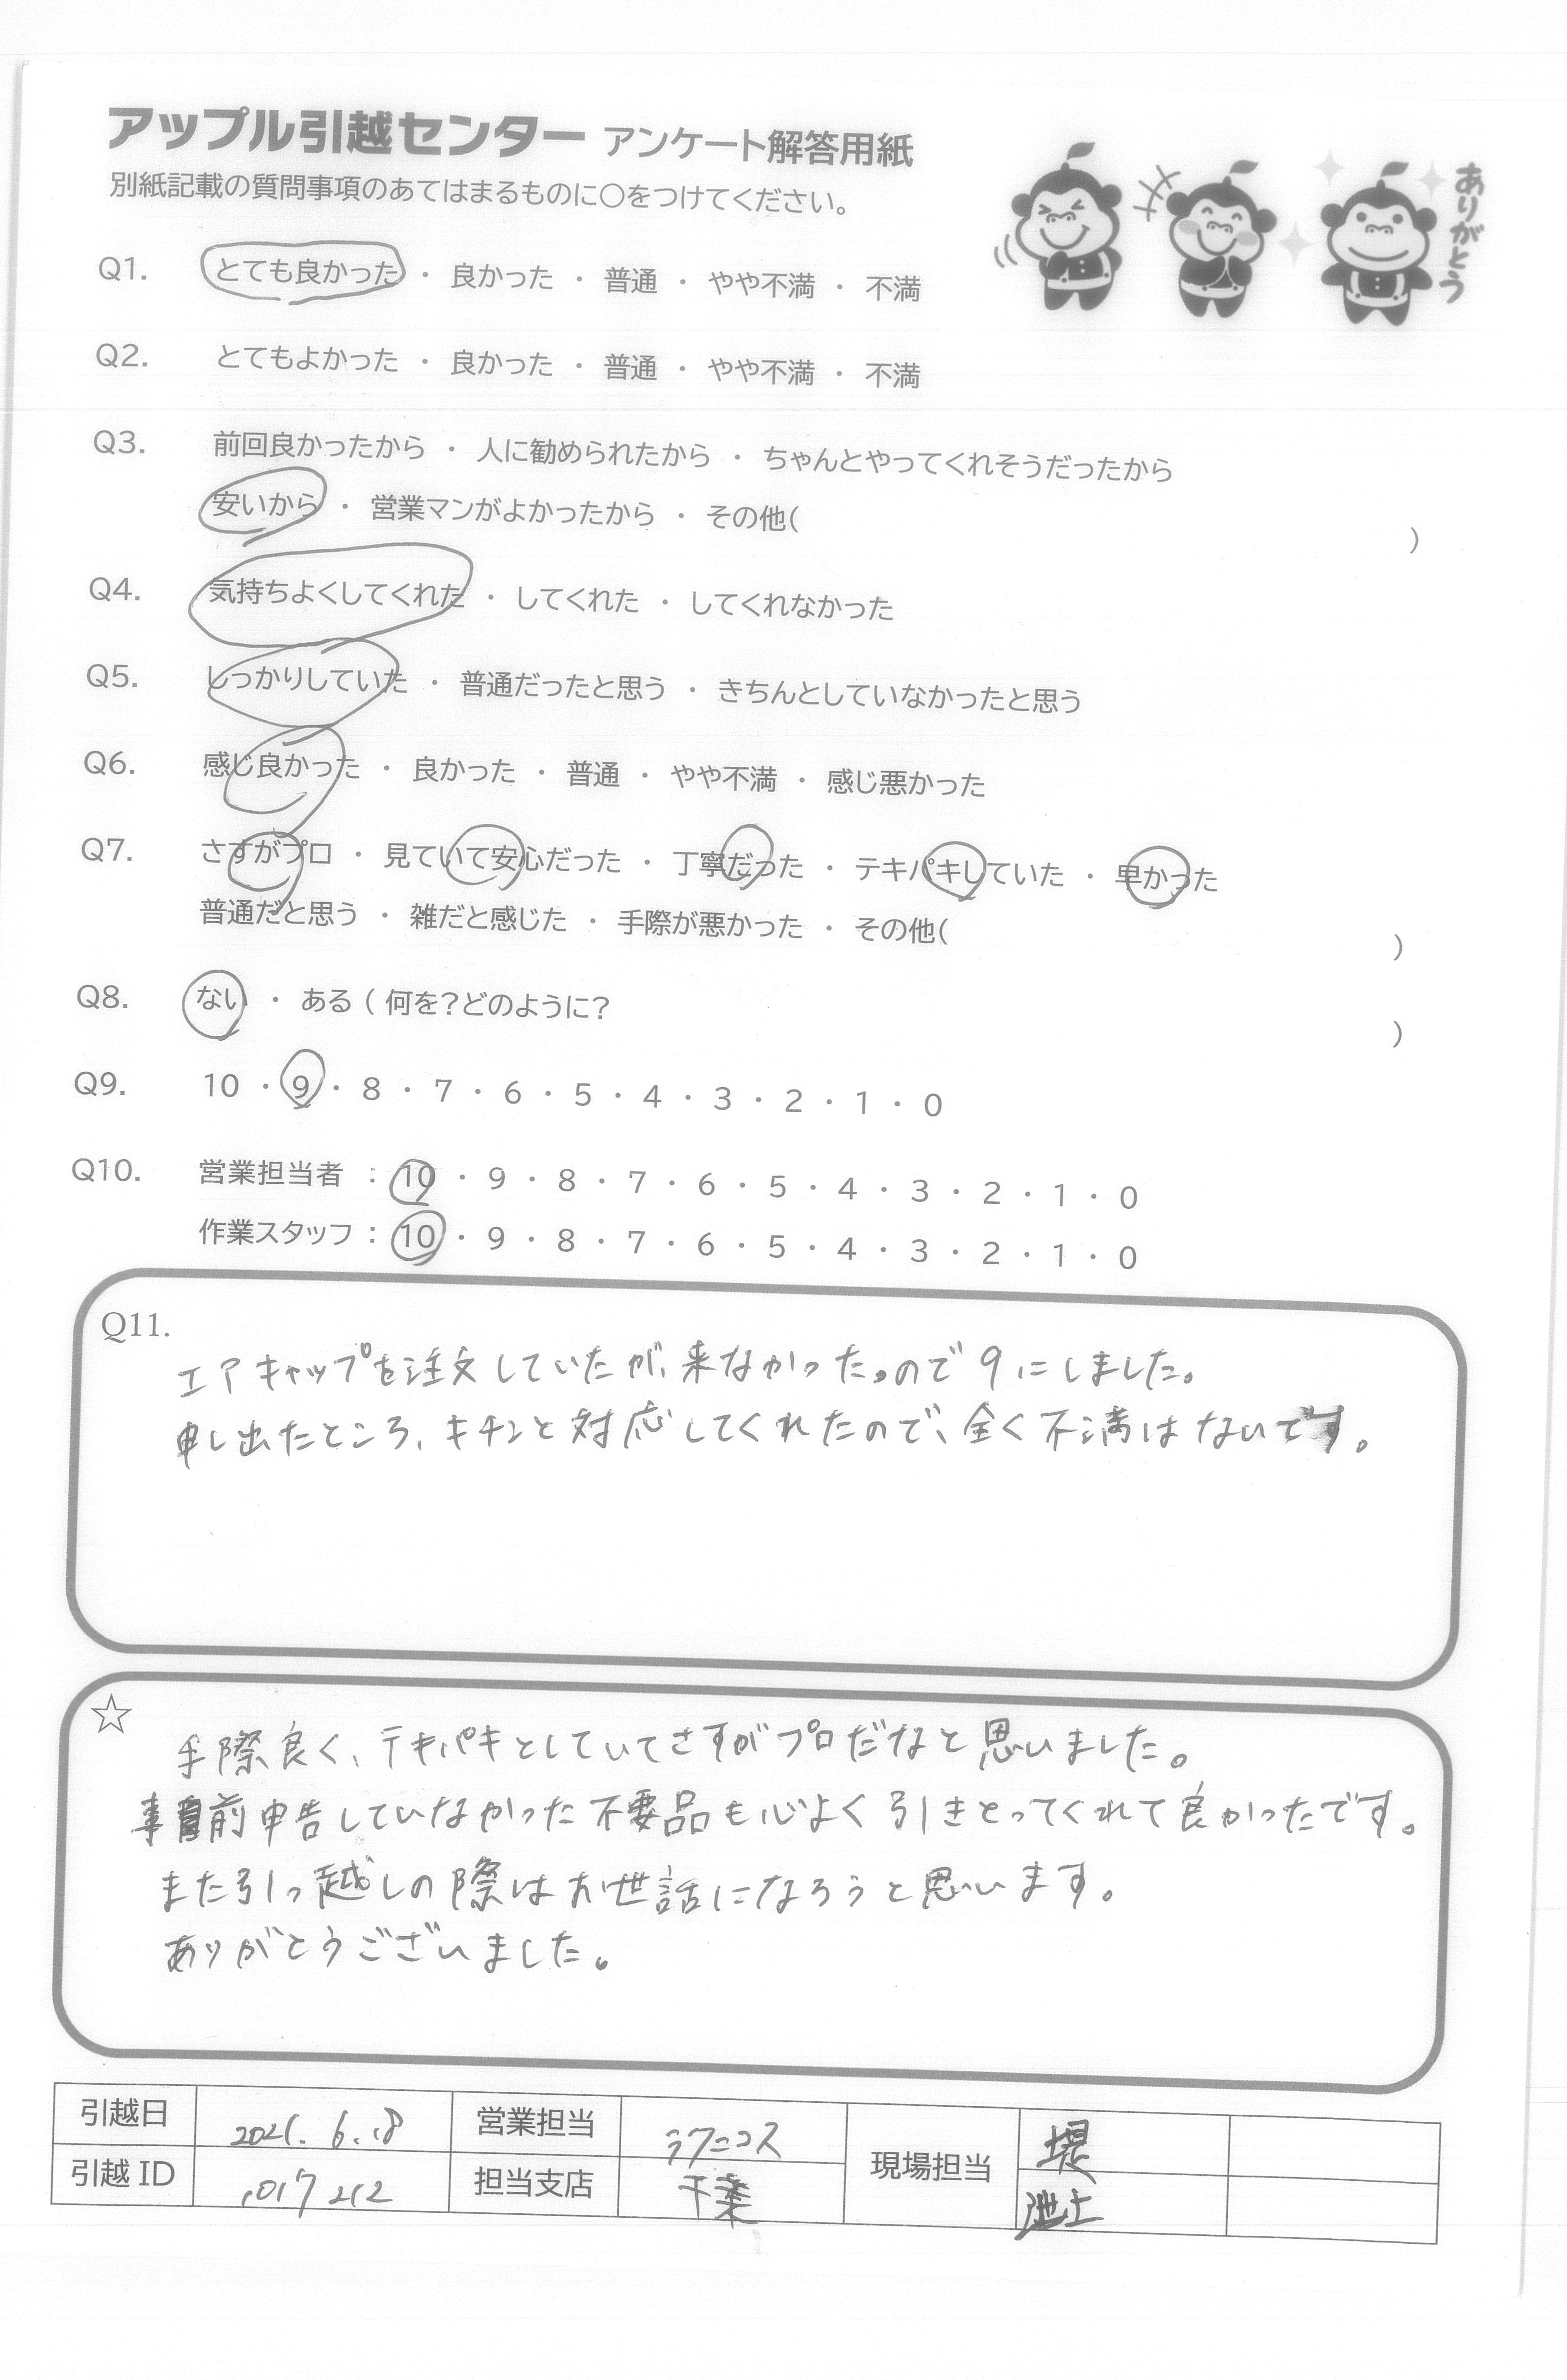 アップル引越センター アンケート解答用紙
別紙記載の質問事項のあてはまるものに○をつけてください。
ありがとう
Q1. とても良かった ・ 良かった ・ 普通 ・ やや不満 ・ 不満
Q2. とてもよかった ・ 良かった ・ 普通 ・ やや不満 ・ 不満
Q3. 前回良かったから ・ 人に勧められたから ・ ちゃんとやってくれそうだったから
安いから ・ 営業マンがよかったから ・ その他( )
Q4. 気持ちよくしてくれた ・ してくれた ・ してくれなかった
Q5. しっかりしていた ・ 普通だったと思う ・ きちんとしていなかったと思う
Q6. 感じ良かった ・ 良かった ・ 普通 ・ やや不満 ・ 感じ悪かった
Q7. さすがプロ ・ 見ていて安心だった ・ 丁寧だった ・ テキパキしていた ・ 早かった
普通だと思う ・ 雑だと感じた ・ 手際が悪かった ・ その他( )
Q8. ない ・ ある ( 何を?どのように? )
Q9. 10 ・ 9 ・ 8 ・ 7 ・ 6 ・ 5 ・ 4 ・ 3 ・ 2 ・ 1 ・ 0
Q10. 営業担当者 : 10 ・ 9 ・ 8 ・ 7 ・ 6 ・ 5 ・ 4 ・ 3 ・ 2 ・ 1 ・ 0
作業スタッフ : 10 ・ 9 ・ 8 ・ 7 ・ 6 ・ 5 ・ 4 ・ 3 ・ 2 ・ 1 ・ 0
Q11.
エアキャップを注文していたが、来なかった。ので9にしました。
申し出たところ、キチンと対応してくれたので、全く不満はないです。
☆
手際良く、テキパキとしていてさすがプロだなと思いました。
事前申告していなかった不要品も心よく引きとってくれて良かったです。
また引っ越しの際はお世話になろうと思います。
ありがとうございました。
引越日 2021. 6. 18 営業担当 現場担当 堤
引越ID 担当支店 千葉 池上